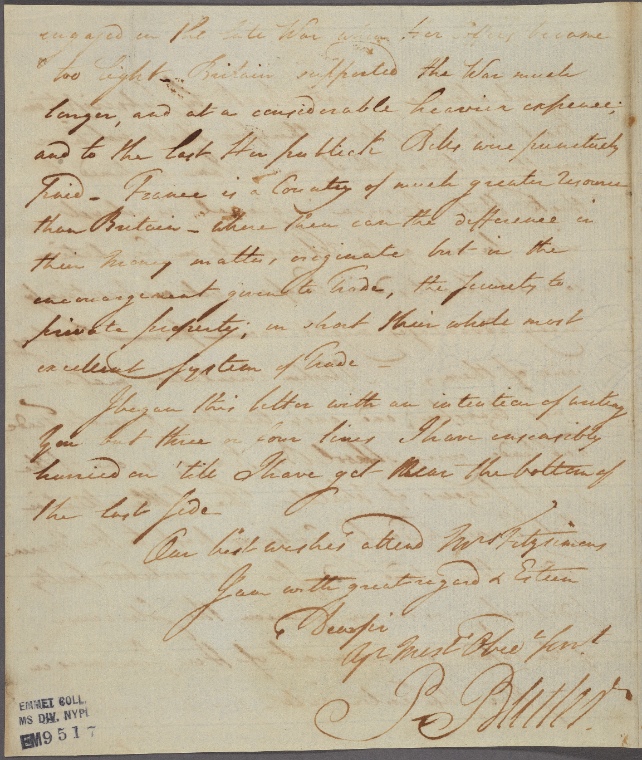 engaged in the late War when Her become
too light. Britain supported the War much
longer, and at a considerable heavier expence;
and to the last Her publick Bills were punctualy
Paid - France is a Country of much greater resource
than Britain - where then can the difference in
their money matters originate but in the
encouragement given to Trade, the security to
private property; in short their whole most
excellent System of Trade -
I began this letter with an intention of writing
You but three or four lines I have insensibly
hurried on 'till I have got near the bottom of
the last side
Our best wishes attend Mrs Fitzsimons
I am with great regard & Esteem
Dear Sir
Yr Most Obedt Servt
P. Butler
EMMET COLL.
MS DIV. NYPL
EM9517